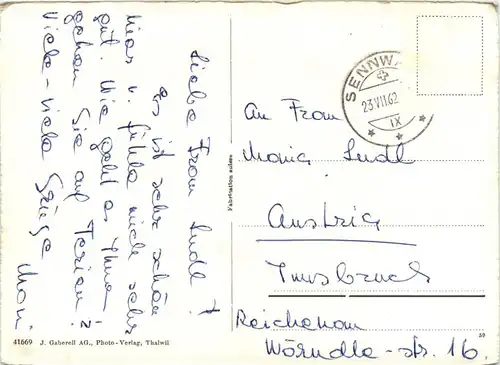 Liebe Frau Sudl!
Es ist sehr schön
hier u. fühle mich sehr
gut. Wie geht es Ihnen
gehen Sie auf Ferien?
Viele - viele Grüsse
SENNW
23 VII 62
IX
An Frau
Maria Sudl
Austria
Innsbruck
Reichenau
Wörndle-str. 16.
Fabrication suisse
41669 J. Gaberell AG., Photo-Verlag, Thalwil
59